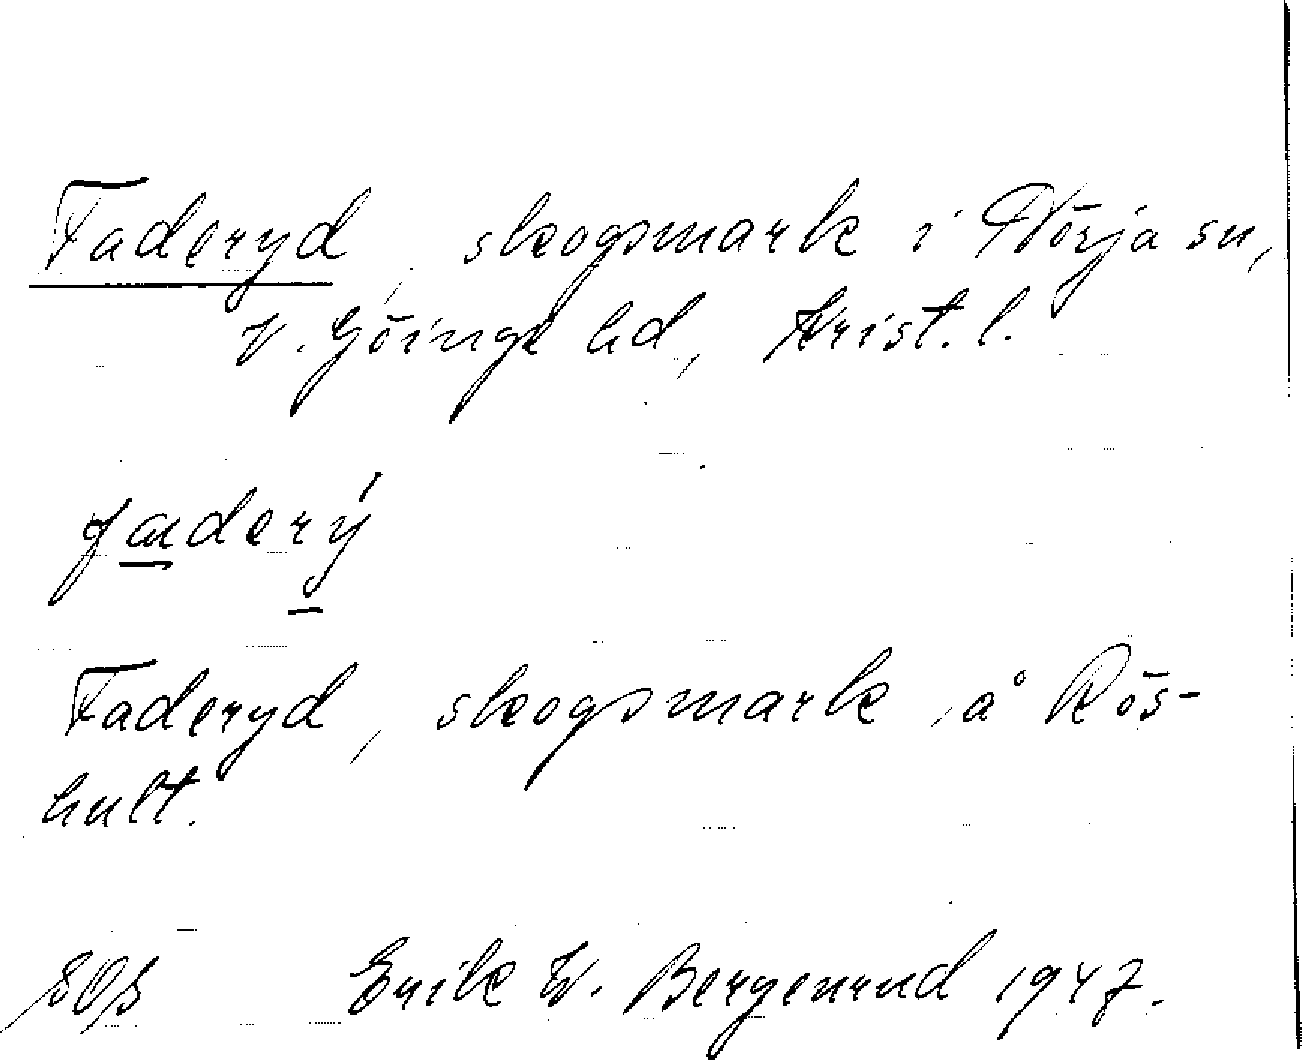 Faderyd, skogsmark i Nörja sn,
V. Göinge hd, Krist. l.
faderý
Faderyd, skogsmark å Rös-
hult.
Erik W. Bergenrud 1947.